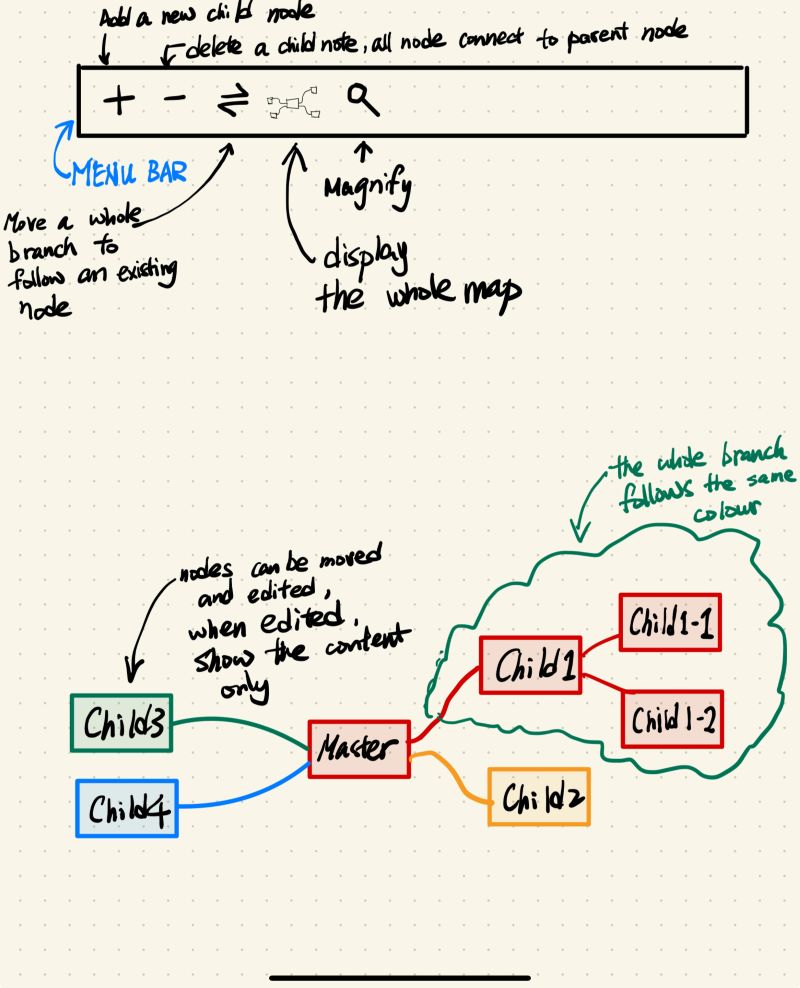 Add a new child node
delete a child note, all node connect to parent node
+ - ⇌
MENU BAR
Magnify
Move a whole
branch to
follow an existing
node
display
the whole map
the whole branch
follows the same
colour
nodes can be moved
and edited,
when edited,
show the content
only
Child1-1
Child1
Child1-2
Child3
Master
Child4
Child2